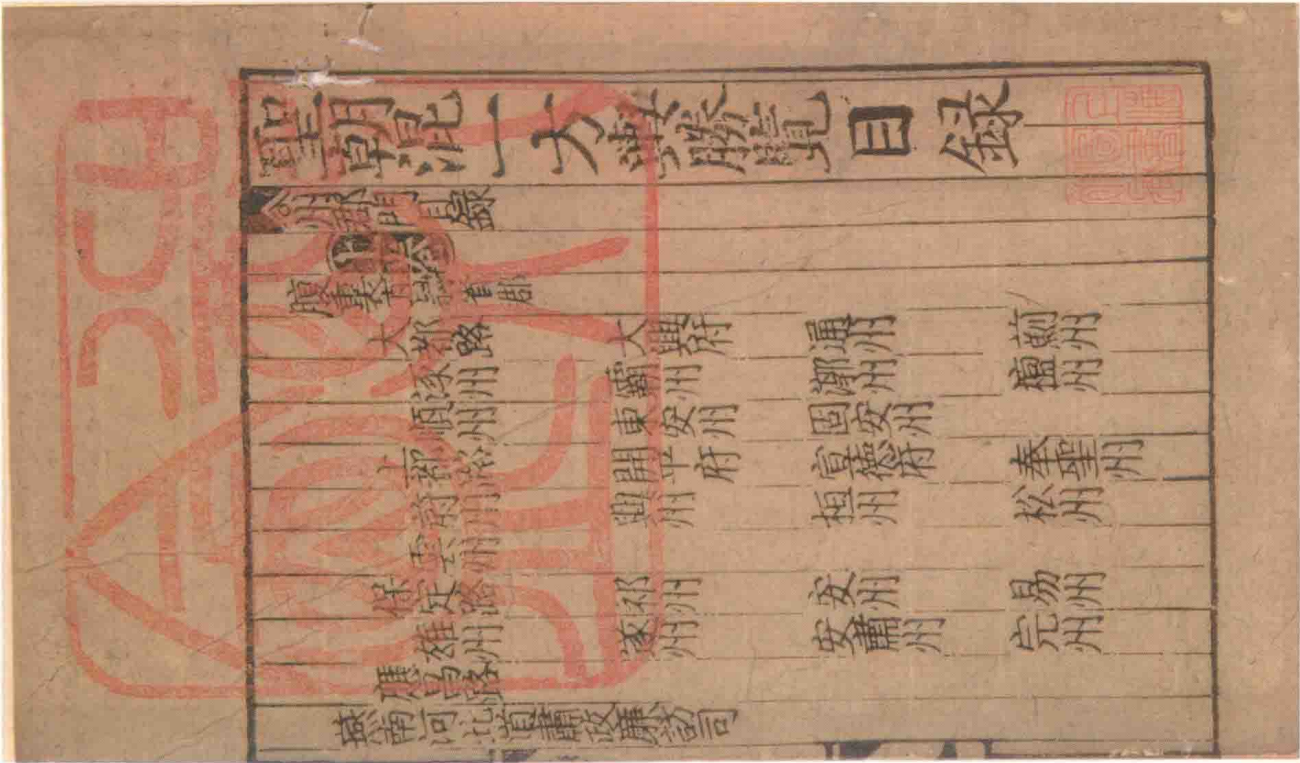 聖朝混一方輿勝覽目録
州郡門目録
腹裏
大都路 大興府 通州 薊州
涿州 霸州 漷州 檀州
順州 東安州 固安州
上都路 開平府 宣德府 奉聖州
蔚州 興州 桓州 松州
雲州
保定路 祁州 安州 易州
雄州 遂州 安肅州 完州
應昌路
燕南河北道肅政廉訪司